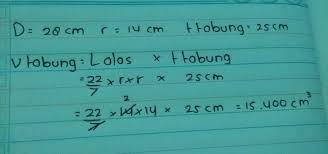 D = 28 cm r = 14 cm t tabung = 25 cm
V tabung = L alas x t tabung
= 22/7 x r x r x 25 cm
= 22/7 x 14 2 x 14 x 25 cm = 15.400 cm³